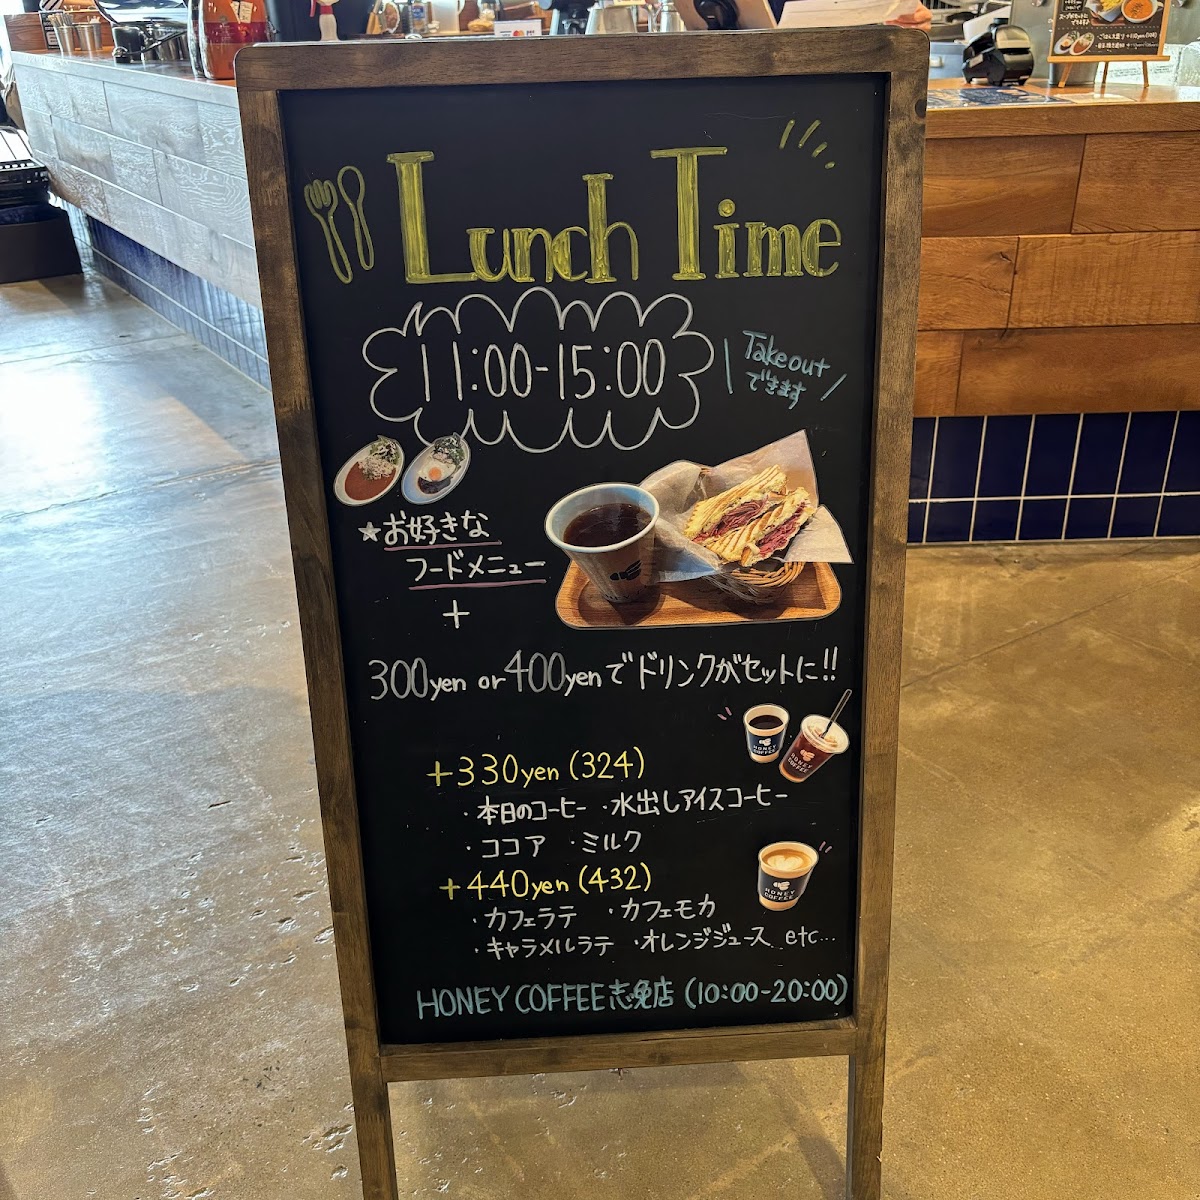 Lunch Time
11:00-15:00
Takeout
できます
★お好きな
フードメニュー
+
300yen or 400yenでドリンクがセットに!!
+330yen (324)
・本日のコーヒー ・水出しアイスコーヒー
・ココア ・ミルク
+440yen (432)
・カフェラテ ・カフェモカ
・キャラメルラテ ・オレンジジュース etc...
HONEY COFFEE志免店 (10:00-20:00)
HONEY
COFFEE
HONEY
COFFEE
HONEY
COFFEE